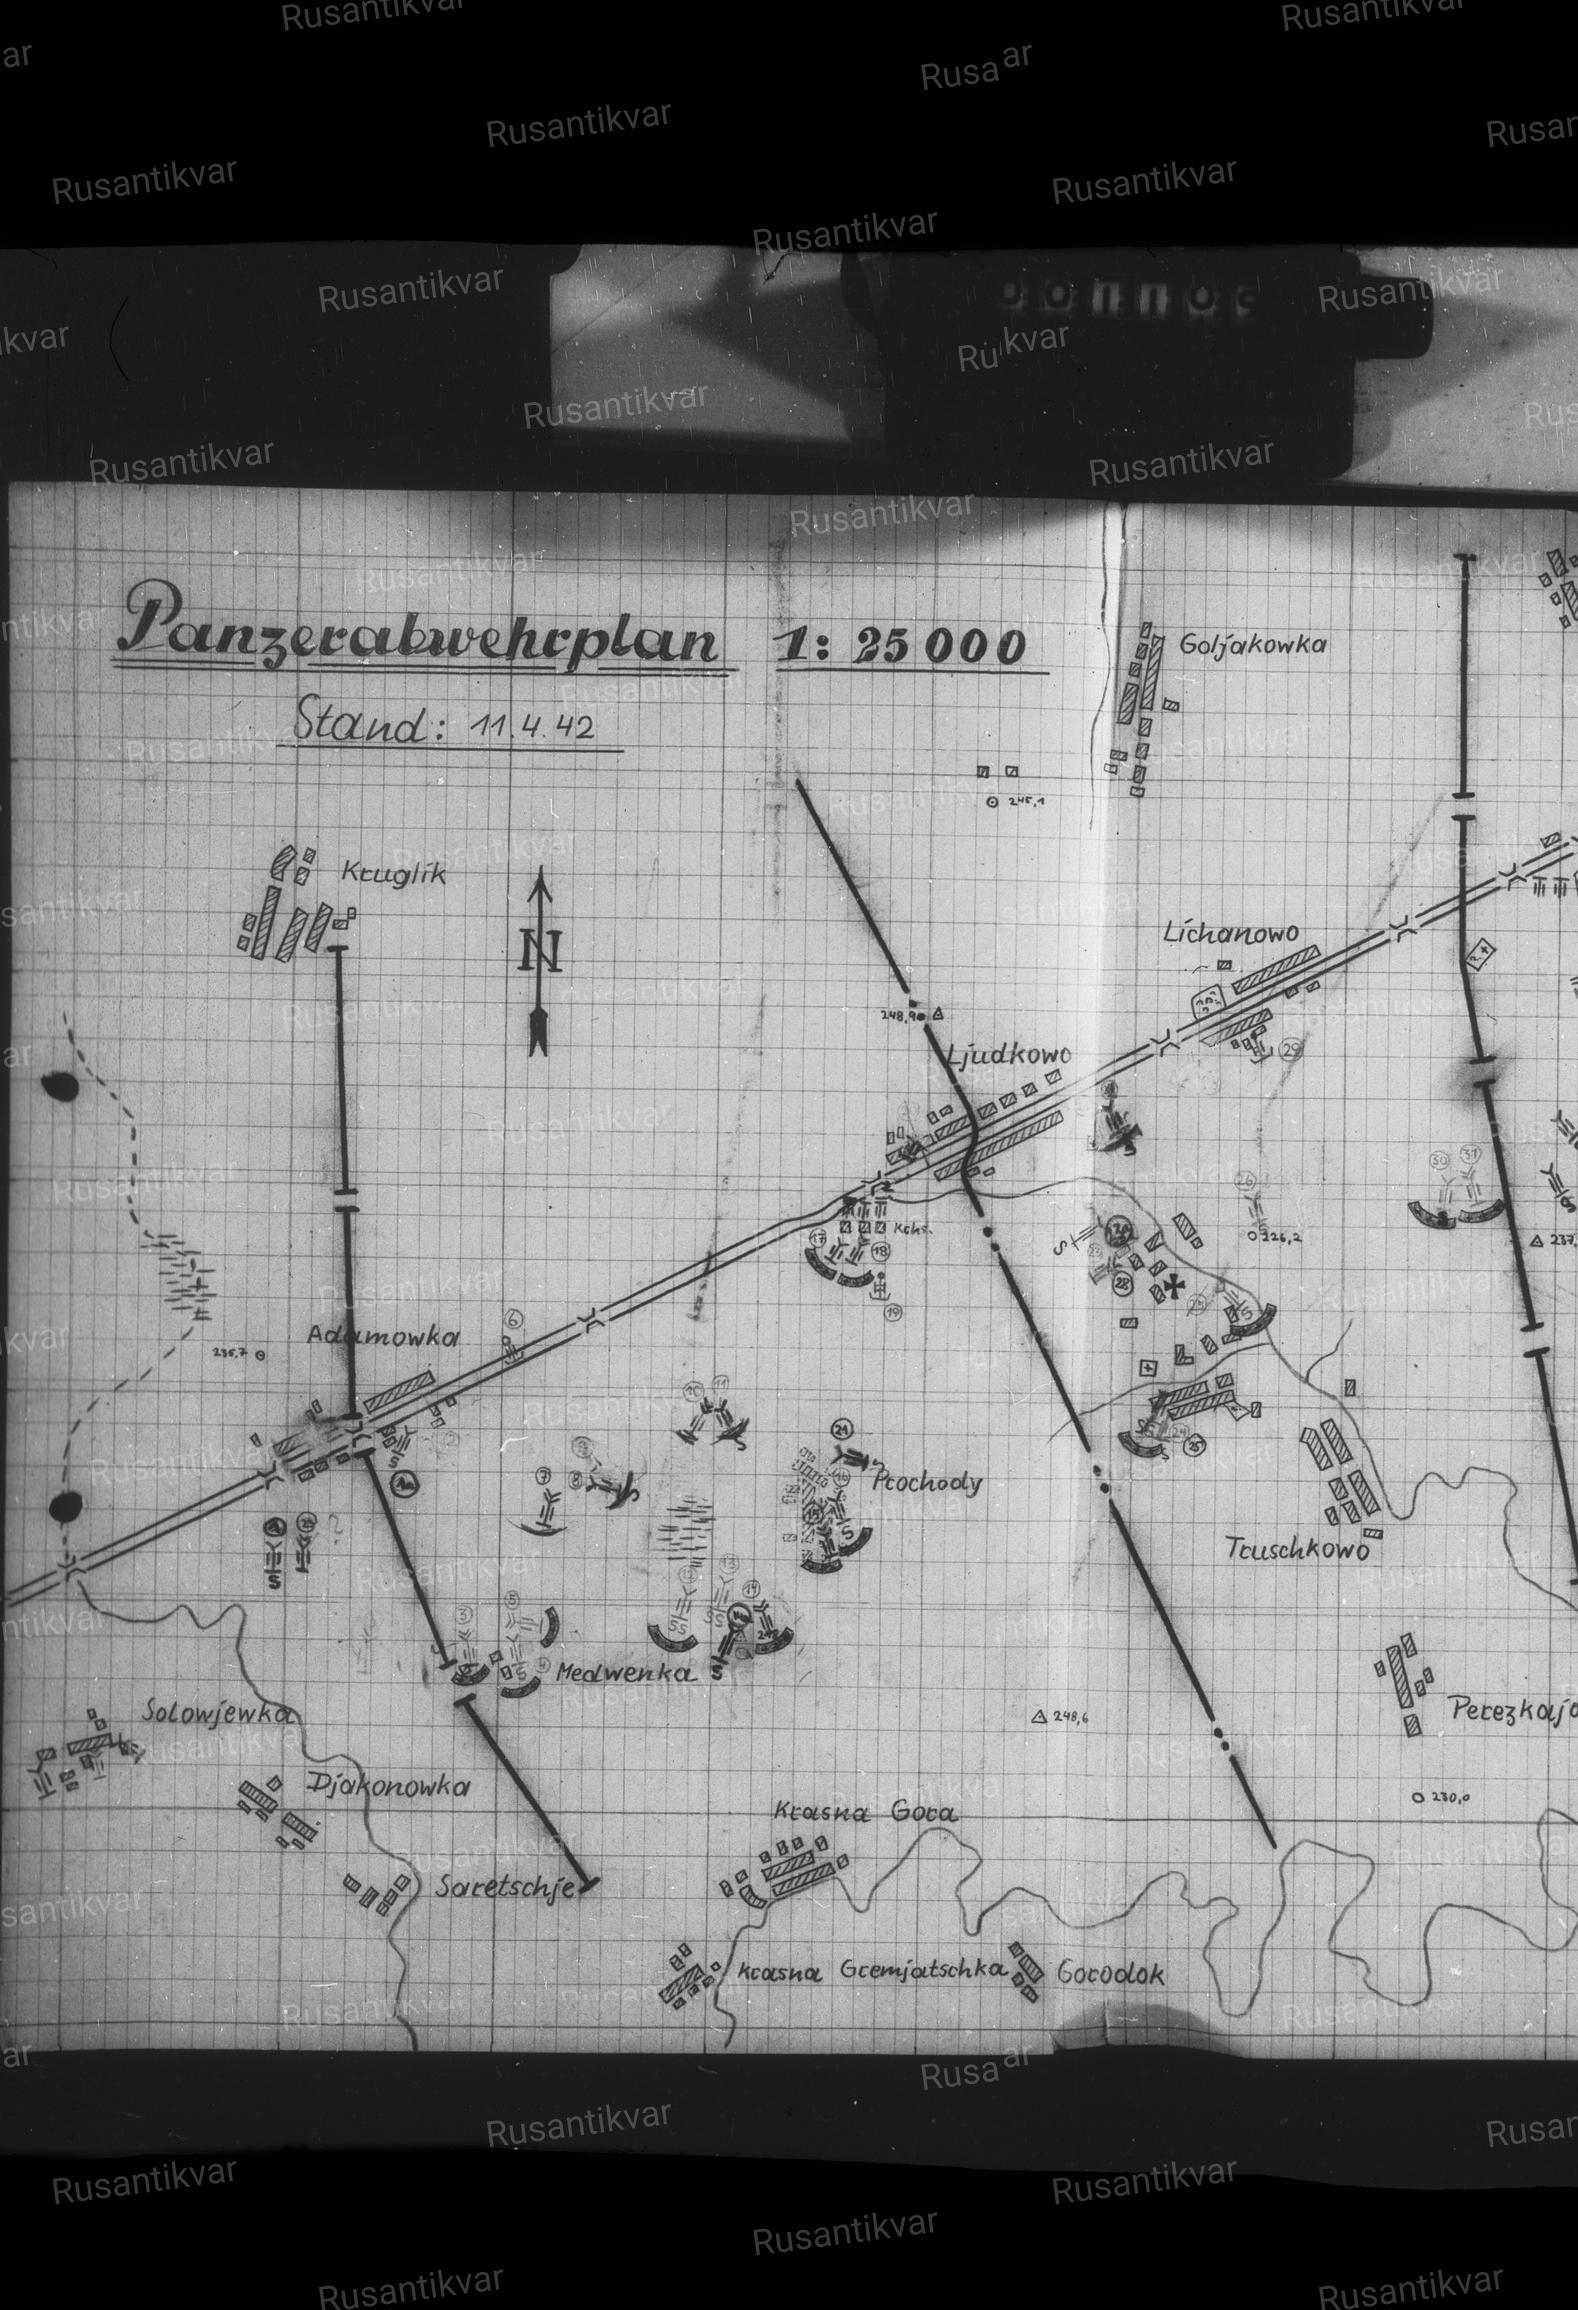 Panzerabwehrplan 1:25000
Stand: 11.4.42
Goljakowka
245,1
Kruglik
N
Lichanowo
248,9
Ljudkowo
29
30
31
26
226,2
237,
Kchs.
17
18
19
28
Adamowka
6
235,7
10
11
21
7
8
Prochody
25
Truschkowo
S
3
5
13
14
4
Medwenka
Solowjewka
248,6
Perezkaja
Djakonowka
230,0
Krasna Gora
Saretschje
Krasna Gremjatschka
Gorodok
Rusantikvar